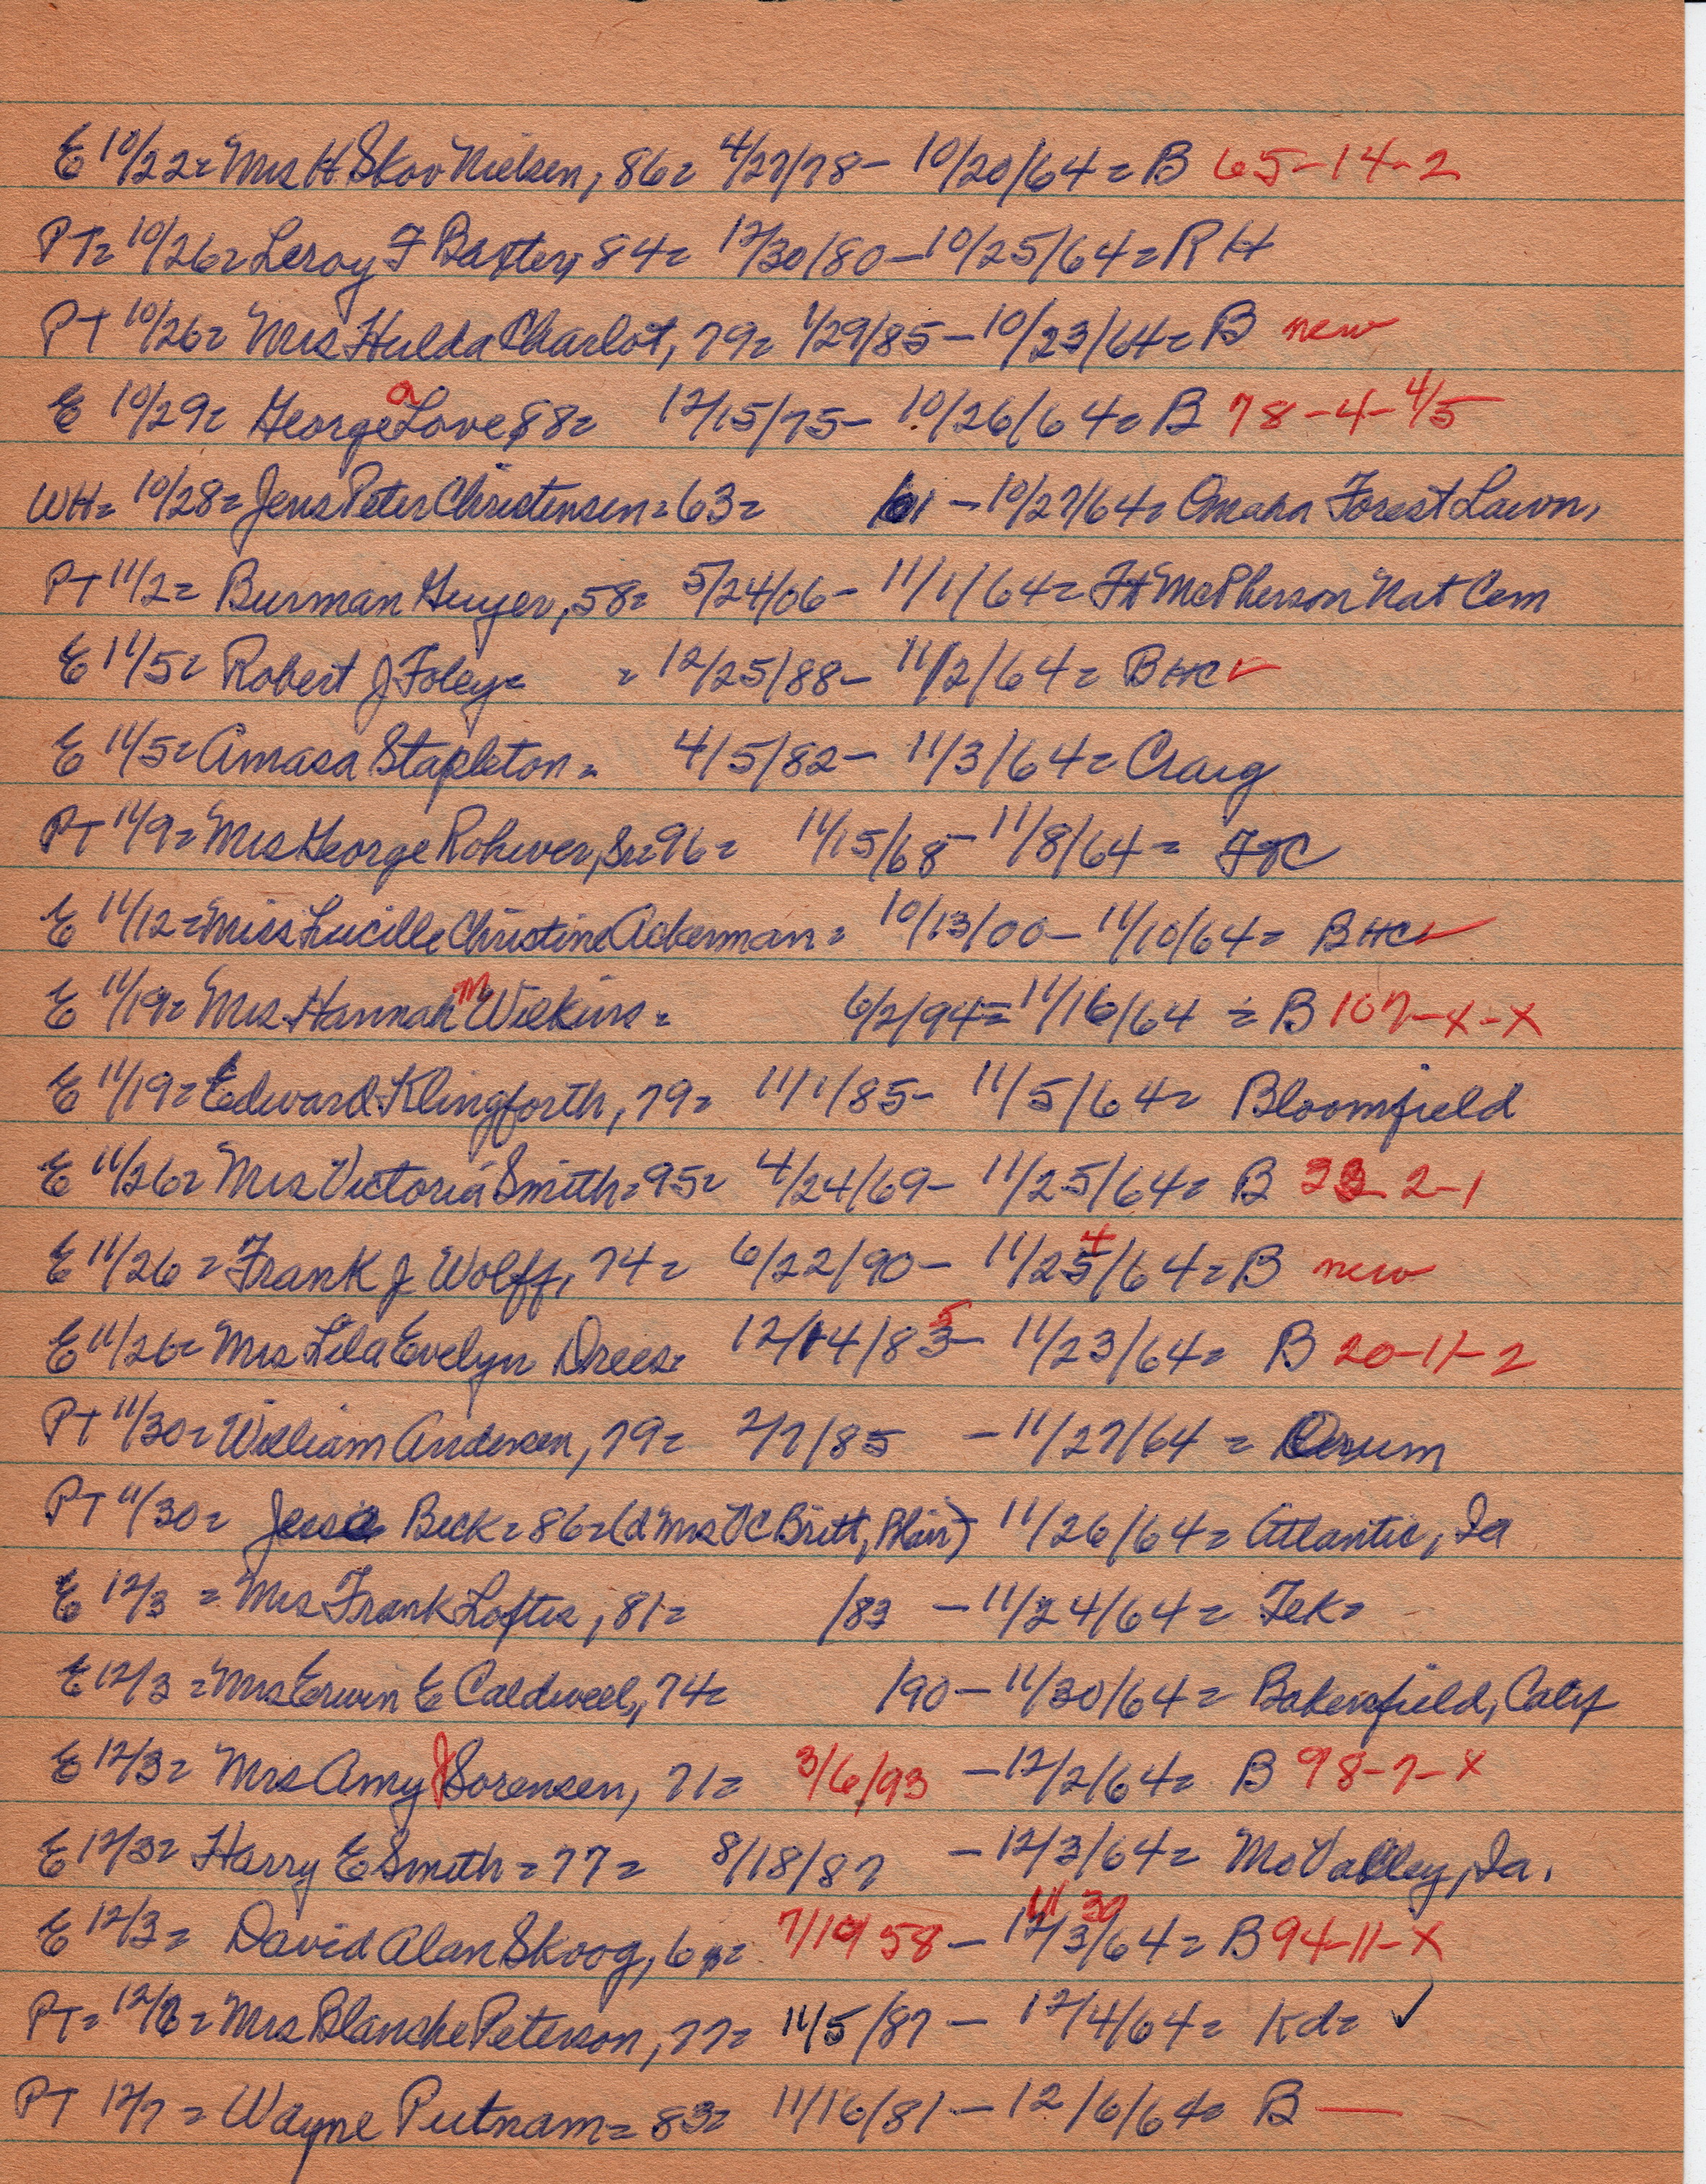 E 10/22= Mrs H Skov Nielsen, 86= 4/27/78- 10/20/64= B 65-14-2
PT= 10/26= Leroy F Baxter, 84= 12/30/80-10/25/64= RH
PT 10/26= Mrs Hulda Charlot, 79= 1/29/85-10/23/64= B new
E 10/29= George a Love 88= 12/15/75- 10/26/64= B 78-4-4/5
WH= 10/28= Jens Peter Christensen=63= 01 -10/27/64= Omaha Forest Lawn,
PT 11/2= Burman Guyer, 58= 5/24/06- 11/1/64= Ft McPherson Nat Cem
E 11/5= Robert J Foley= = 12/25/88- 11/2/64= BHC ✓
E 11/5= Amasa Stapleton= 4/5/82- 11/3/64= Craig
PT 11/9= Mrs George Rohwer, Sr=96= 11/15/68-11/8/64= FTC
E 11/12=Miss Lucille Christine Ackerman= 10/13/00-11/10/64= BHC ✓
E 11/19= Mrs Hannah M Wilkins= 6/2/94=11/16/64 = B 107-x-x
E 11/19= Edward Klingforth, 79= 11/1/85- 11/5/64= Bloomfield
E 11/26= Mrs Victoria Smith=95= 4/24/69- 11/25/64= B 2-1
E 11/26= Frank J Wolff, 74= 6/22/90- 11/25 4/64= B new
E 11/26= Mrs Lila Evelyn Drees= 12/14/83 5- 11/23/64= B 20-11-2
PT 11/30= William Andersen, 79= 2/7/85 -11/27/64= Orum
PT 11/30= Jesse Beck=86=(d Mrs OC Britt, Blair) 11/26/64= Atlantic, Ia
E 12/3 = Mrs Frank Loftis, 81= /83 -11/24/64= Tek=
E 12/3 = Mrs Erwin E Caldwell, 74= /90-11/30/64= Bakersfield, Calif
E 12/3= Mrs Amy J Sorensen, 71= 3/6/93 -12/2/64= B 98-7-x
E 12/3= Harry E Smith=77= 8/18/87 -12/3/64= Mo Valley, Ia.
E 12/3= David Alan Skoog, 6= 7/10/58- 12/3/64 11 30= B 94-11-x
PT= 12/7= Mrs Blanche Peterson, 77= 11/5/87- 12/4/64= Kd= ✓
PT 12/7= Wayne Putnam=83= 11/16/81-12/6/64= B —